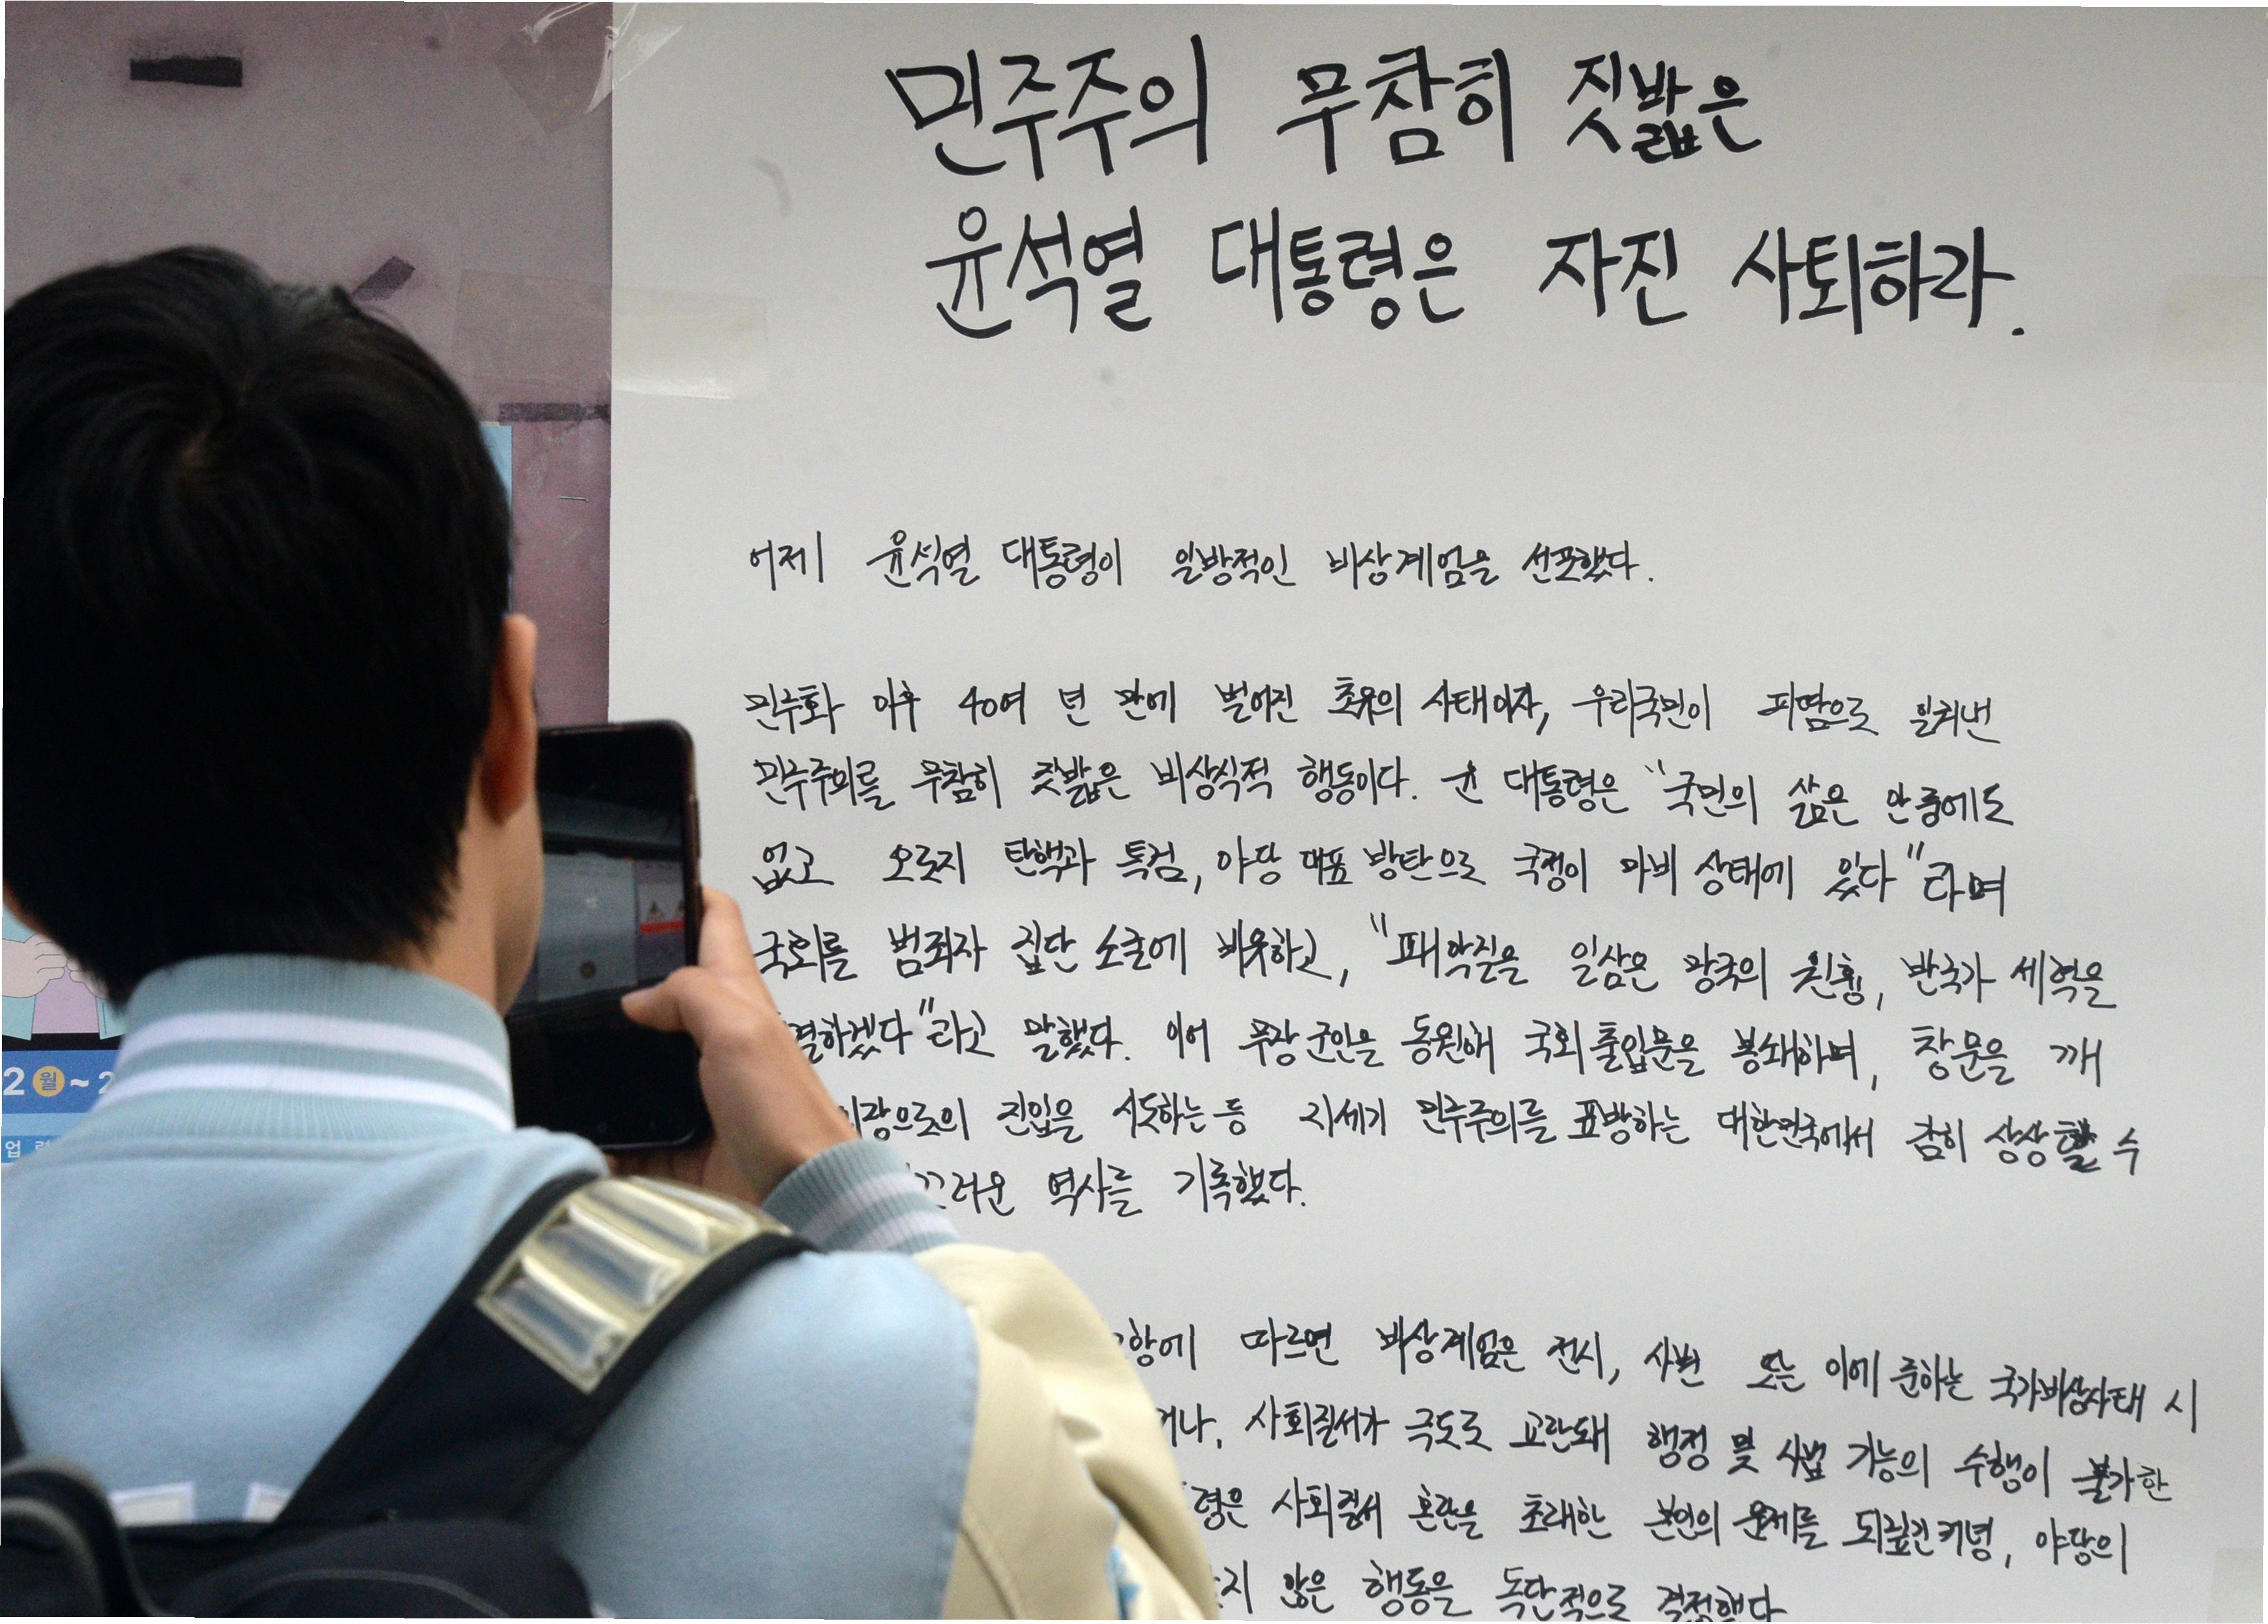 민주주의 무참히 짓밟은
윤석열 대통령은 자진 사퇴하라.
어제 윤석열 대통령이 일방적인 비상계엄을 선포했다.
민주화 이후 40여 년 만에 벌어진 초유의 사태이자, 우리국민이 피땀으로 일궈낸
민주주의를 무참히 짓밟은 비상식적 행동이다. 윤 대통령은 "국민의 삶은 안중에도
없고 오로지 탄핵과 특검, 야당 대표 방탄으로 국정이 마비 상태에 있다"라며
국회를 범죄자 집단 소굴에 비유하고, "패악질을 일삼은 망국의 원흉, 반국가 세력을
결하겠다"라고 말했다. 이어 무장군인을 동원해 국회 출입문을 봉쇄하며, 창문을 깨
의장으로의 진입을 시도하는 등 지세기 민주주의를 표방하는 대한민국에서 감히 상상할 수
끄러운 역사를 기록했다.
항에 따르면 비상계엄은 전시, 사변 또는 이에 준하는 국가비상사태 시
거나, 사회질서가 극도로 교란돼 행정 및 사법 기능의 수행이 불가한
령은 사회질서 혼란을 초래한 본인의 문제를 되짚긴커녕, 야당의
지 않은 행동을 독단적으로 결정했다
2 월 ~ 2
업